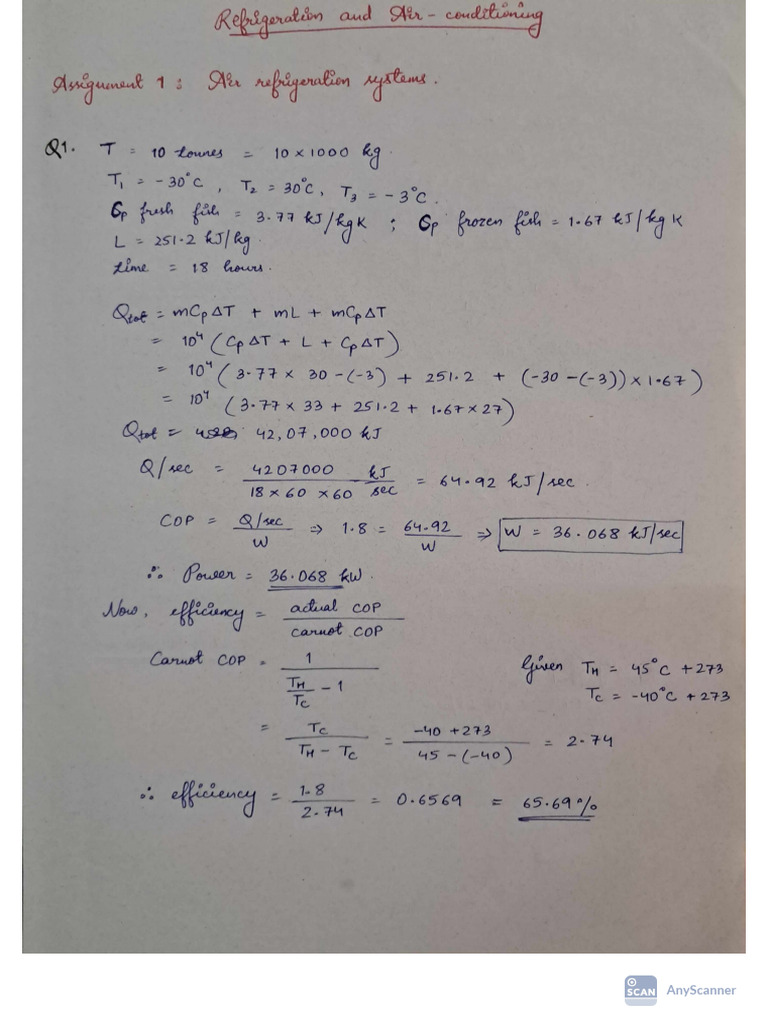 Refrigeration and Air-conditioning
Assignment 1 : Air refrigeration systems.
Q1. T = 10 tonnes = 10 × 1000 kg.
T₁ = -30°C , T₂ = 30°C, T₃ = -3°C.
Cp fresh fish = 3.77 kJ/kg K ; Cp frozen fish = 1.67 kJ/kg K
L = 251.2 kJ/kg.
time = 18 hours.
Qtot = mCpΔT + mL + mCpΔT
= 10⁴ (CpΔT + L + CpΔT)
= 10⁴ (3.77 × 30 - (-3) + 251.2 + (-30 - (-3)) × 1.67)
= 10⁴ (3.77 × 33 + 251.2 + 1.67 × 27)
Qtot = 42,07,000 kJ
Q/sec = 4207000 / 18 × 60 × 60 kJ/sec = 64.92 kJ/sec.
COP = Q/sec / W ⇒ 1.8 = 64.92 / W ⇒ W = 36.068 kJ/sec
∴ Power = 36.068 kW.
Now, efficiency = actual COP / carnot COP
Carnot COP = 1 / (TH/TC - 1) Given TH = 45°C + 273
TC = -40°C + 273
= TC / TH - TC = -40 + 273 / 45 - (-40) = 2.74
∴ efficiency = 1.8 / 2.74 = 0.6569 = 65.69%
SCAN AnyScanner